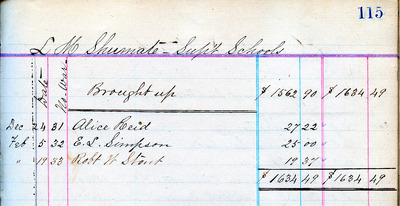 115
L M Shumate - Supt Schools
Date No War
Brought up $1562 90 $1634 49
Dec 24 31 Alice Reid 27 22
Feb 5 32 E. L. Simpson 25 00
" 19 33 Robt W Stout 19 37
$1634 49 $1634 49